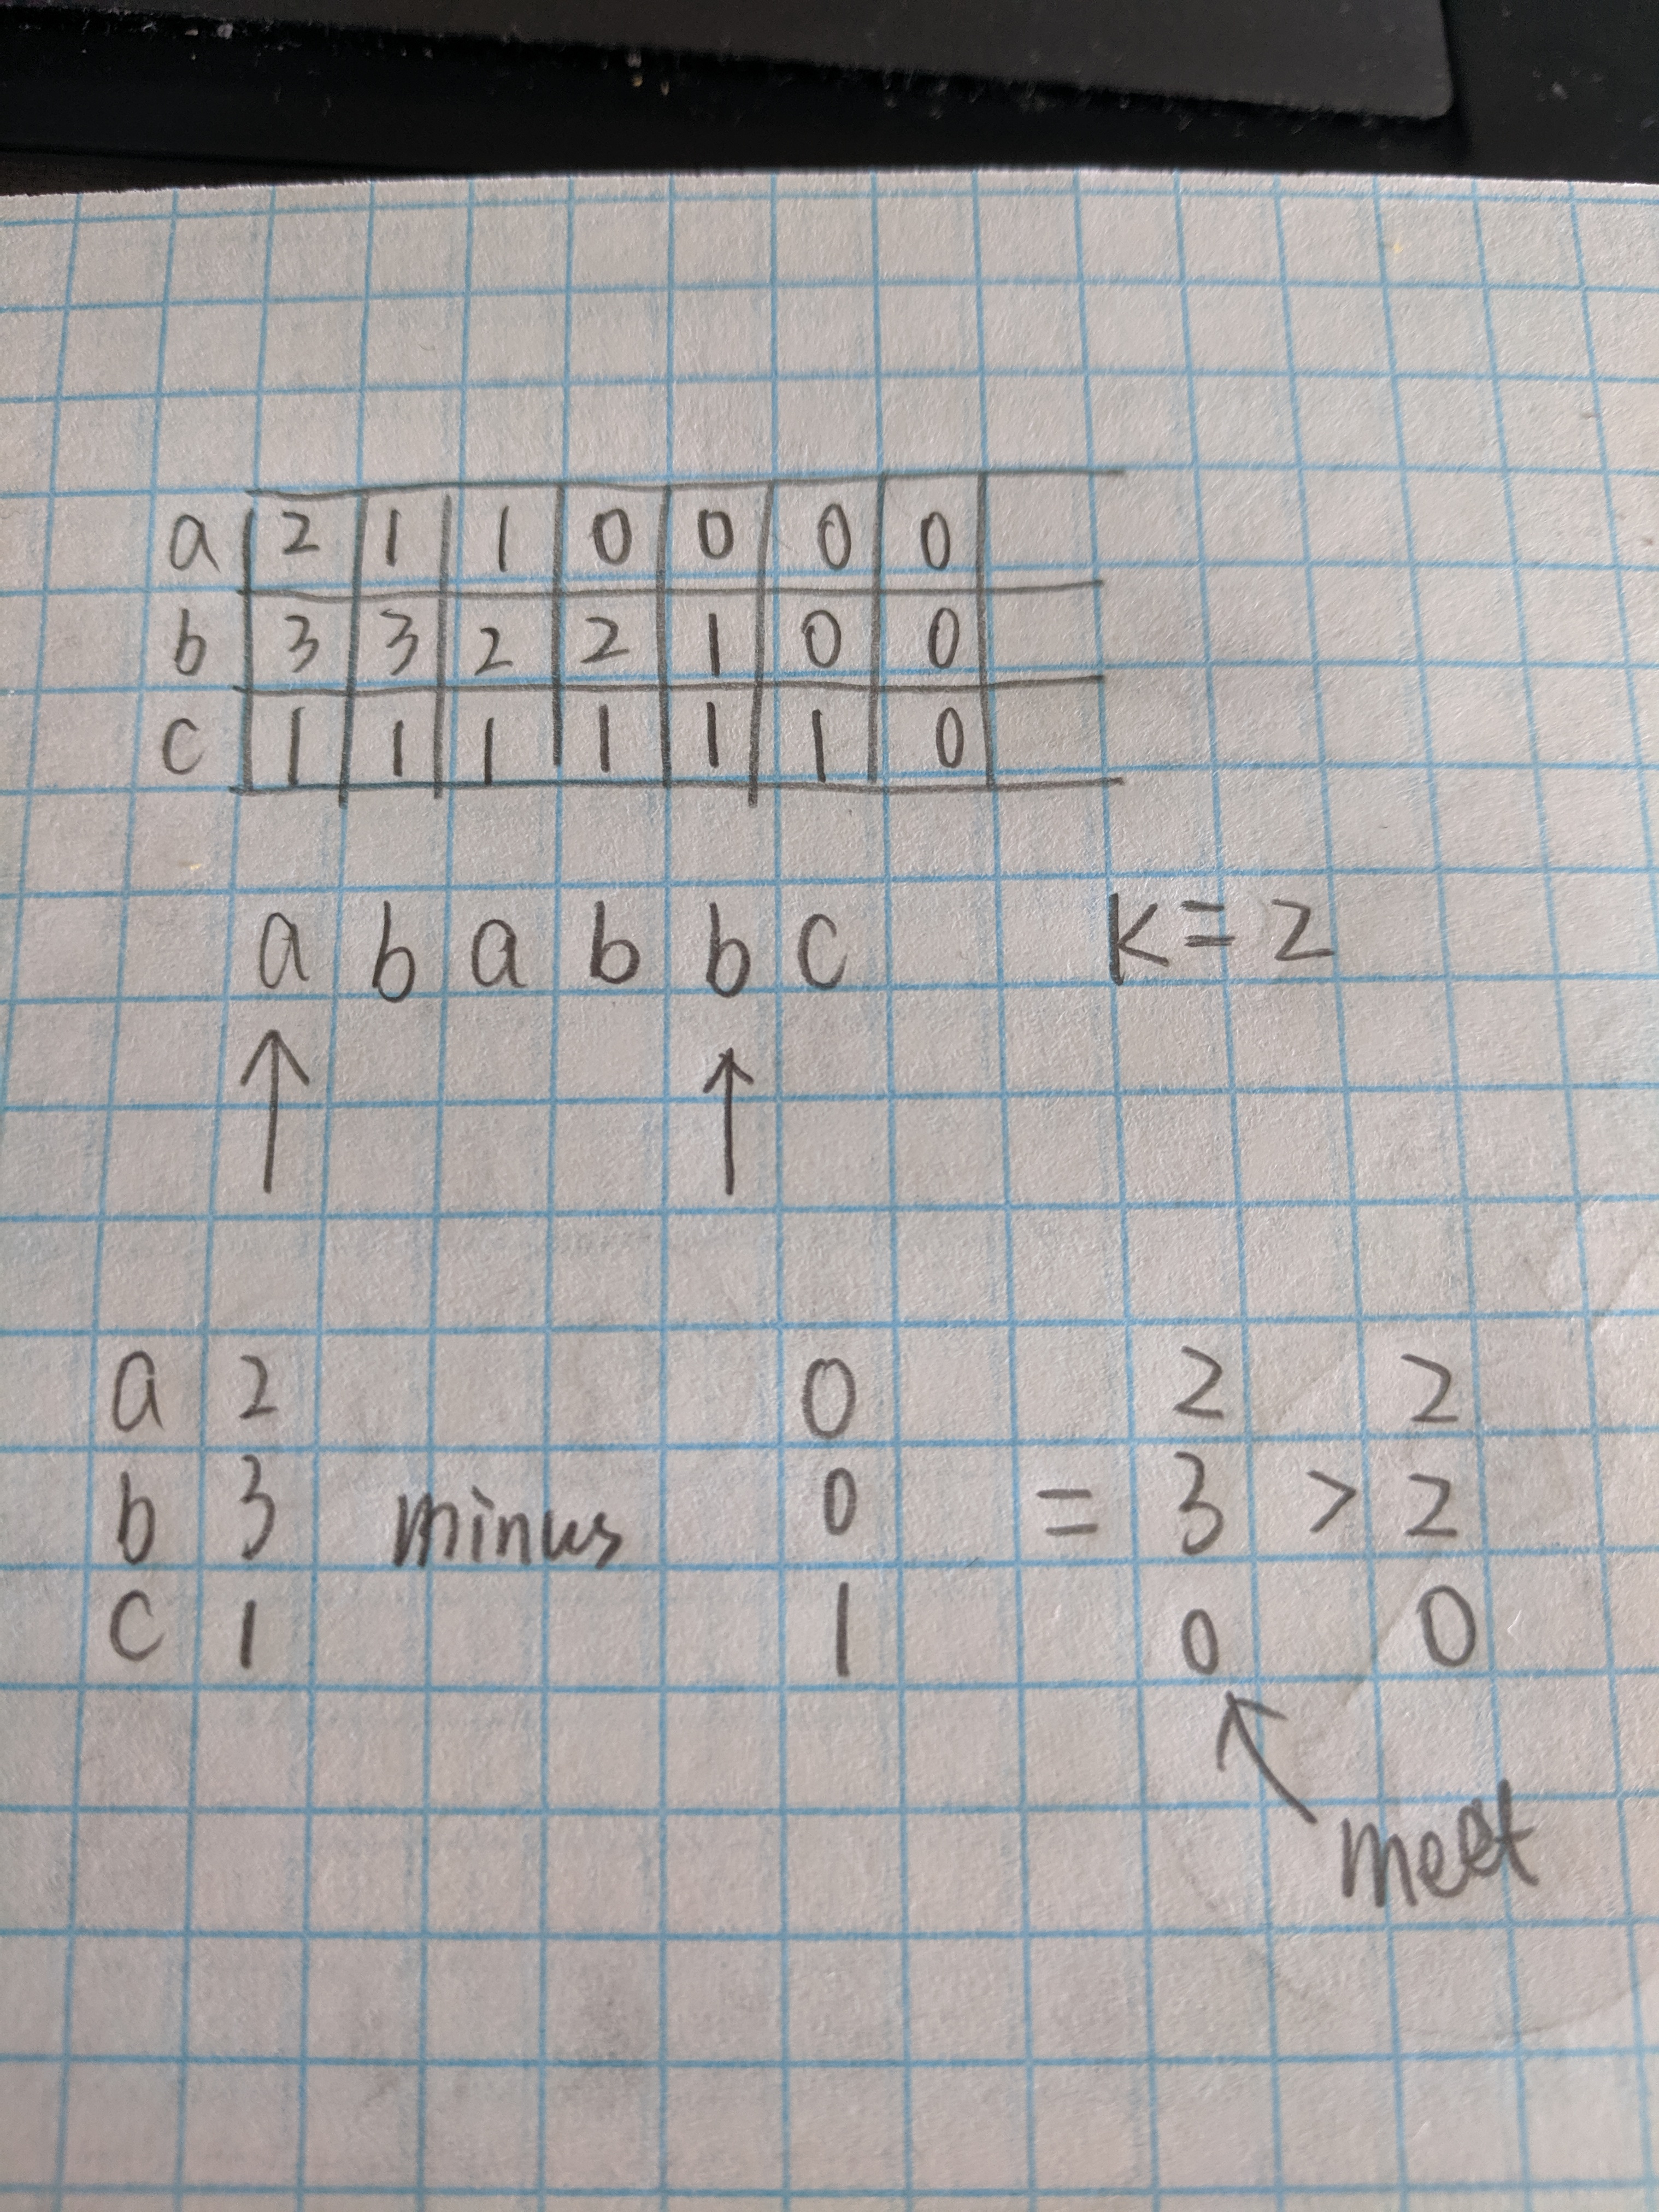 a 2 1 1 0 0 0 0
b 3 3 2 2 1 0 0
c 1 1 1 1 1 1 0
a b a b b c K = 2
a 2 0 2 2
b 3 minus 0 = 3 > 2
c 1 1 0 0
meet